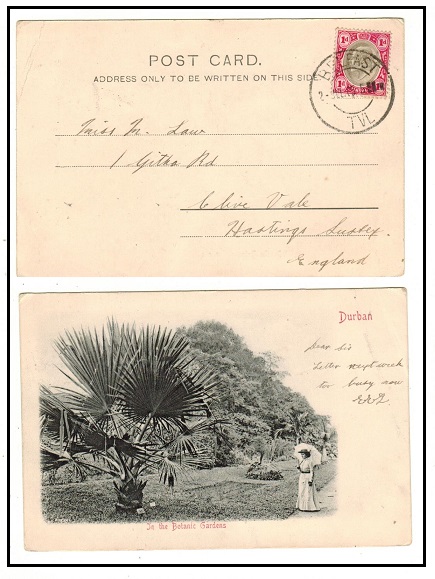 POST CARD.
ADDRESS ONLY TO BE WRITTEN ON THIS SIDE.
1d 1d
BELFAST
TVL
Miss M. Law
1 Githa Rd
Clive Vale
Hastings Sussex.
England
Durban
Dear Sis
Letter next week
too busy now
In the Botanic Gardens